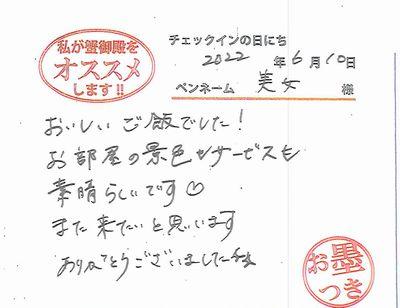 私が蟹御殿を
オススメ
します!!
チェックインの日にち
2022年6月10日
ペンネーム 美女 様
おいしいご飯でした!
お部屋の景色もサービスも
素晴らしいです♡
また来たいと思います
ありがとうございました
お墨
つき